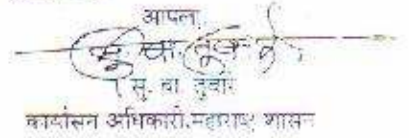 आपला,
सु. वा. तुंबारे
( सु. वा तुंबारे
कार्यासन अधिकारी,महाराष्ट्र शासन